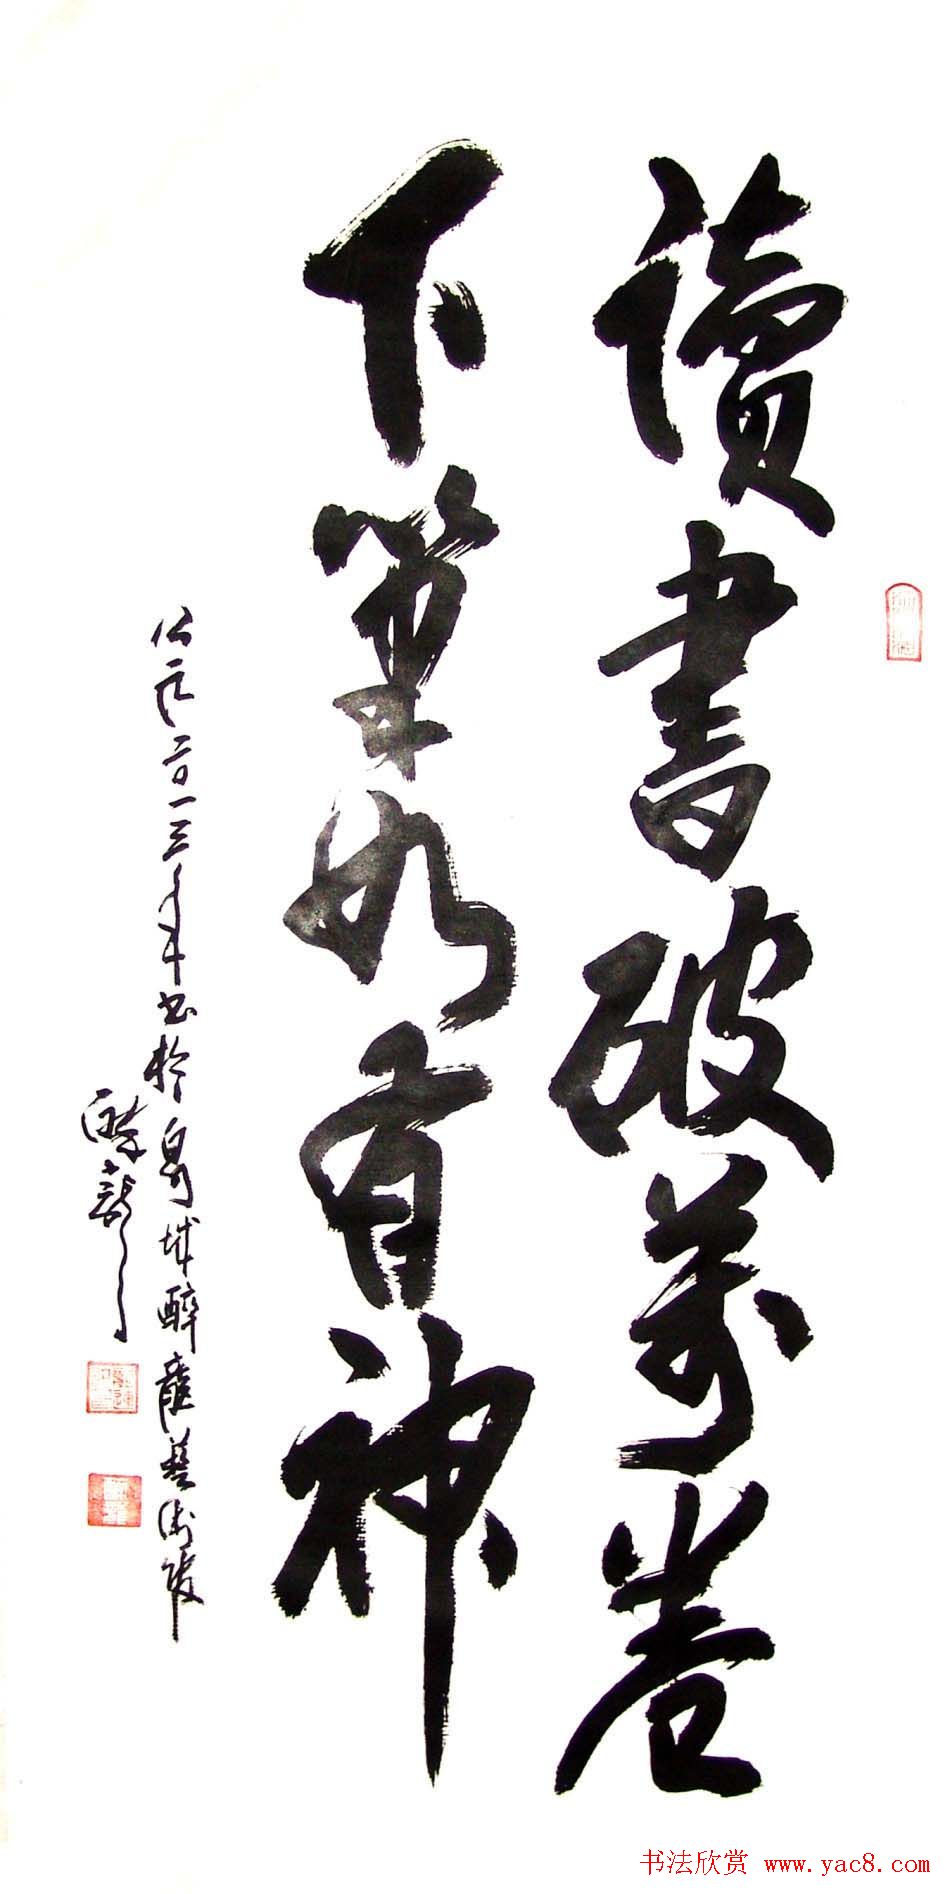 讀書破萬卷
下筆如有神
公元二〇一三年書於泉城醉龍藝術
醉龍
书法欣赏 www.yac8.com